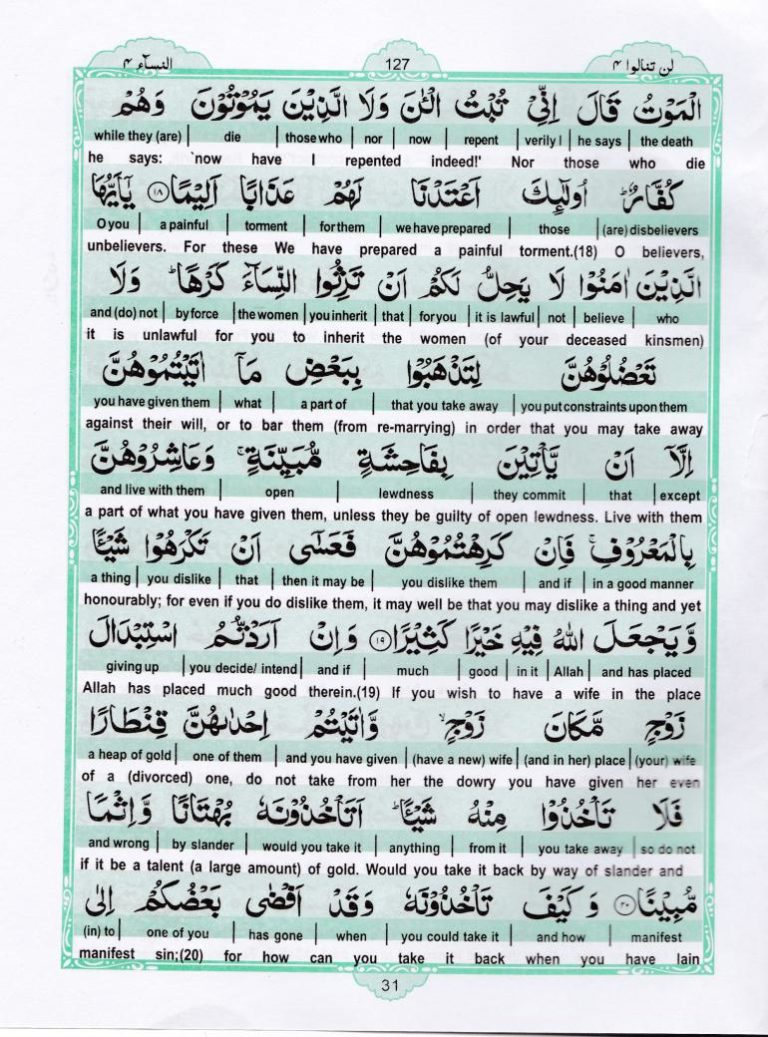 النسآء ٤ 127 لن تنالوا ٤
الْمَوْتُ قَالَ اِنِّيْ تُبْتُ الْـٰٔنَ وَلَا الَّذِيْنَ يَمُوْتُوْنَ وَهُمْ
while they (are) | die | those who | nor | now | repent | verily I | he says | the death
he says: `now have I repented indeed!' Nor those who die
كُفَّارٌ ؕ اُولٰٓئِكَ اَعْتَدْنَا لَهُمْ عَذَابًا اَلِيْمًا ١٨ يٰۤاَيُّهَا
O you | a painful | torment | for them | we have prepared | those | (are) disbelievers
unbelievers. For these We have prepared a painful torment.(18) O believers,
الَّذِيْنَ اٰمَنُوْا لَا يَحِلُّ لَكُمْ اَنْ تَرِثُوا النِّسَآءَ كَرْهًا ؕ وَلَا
and (do) not | by force | the women | you inherit | that | for you | it is lawful | not | believe | who
it is unlawful for you to inherit the women (of your deceased kinsmen)
تَعْضُلُوْهُنَّ لِتَذْهَبُوْا بِبَعْضِ مَاۤ اٰتَيْتُمُوْهُنَّ
you have given them | what | a part of | that you take away | you put constraints upon them
against their will, or to bar them (from re-marrying) in order that you may take away
اِلَّاۤ اَنْ يَّاْتِيْنَ بِفَاحِشَةٍ مُّبَيِّنَةٍ ۚ وَعَاشِرُوْهُنَّ
and live with them | open | lewdness | they commit | that | except
a part of what you have given them, unless they be guilty of open lewdness. Live with them
بِالْمَعْرُوْفِ ۚ فَاِنْ كَرِهْتُمُوْهُنَّ فَعَسٰۤى اَنْ تَكْرَهُوْا شَيْـًٔا
a thing | you dislike | that | then it may be | you dislike them | and if | in a good manner
honourably; for even if you do dislike them, it may well be that you may dislike a thing and yet
وَّيَجْعَلَ اللّٰهُ فِيْهِ خَيْرًا كَثِيْرًا ١٩ وَاِنْ اَرَدْتُّمُ اسْتِبْدَالَ
giving up | you decide/ intend | and if | much | good | in it | Allah | and has placed
Allah has placed much good therein.(19) If you wish to have a wife in the place
زَوْجٍ مَّكَانَ زَوْجٍ ۙ وَّاٰتَيْتُمْ اِحْدٰىهُنَّ قِنْطَارًا
a heap of gold | one of them | and you have given | (have a new) wife | (and in her) place | (your) wife
of a (divorced) one, do not take from her the dowry you have given her even
فَلَا تَاْخُذُوْا مِنْهُ شَيْـًٔا ؕ اَتَاْخُذُوْنَهٗ بُهْتَانًا وَّاِثْمًا
and wrong | by slander | would you take it | anything | from it | you take away | so do not
if it be a talent (a large amount) of gold. Would you take it back by way of slander and
مُّبِيْنًا ٢٠ وَكَيْفَ تَاْخُذُوْنَهٗ وَقَدْ اَفْضٰى بَعْضُكُمْ اِلٰى
(in) to | one of you | has gone | when | you could take it | and how | manifest
manifest sin;(20) for how can you take it back when you have lain
31